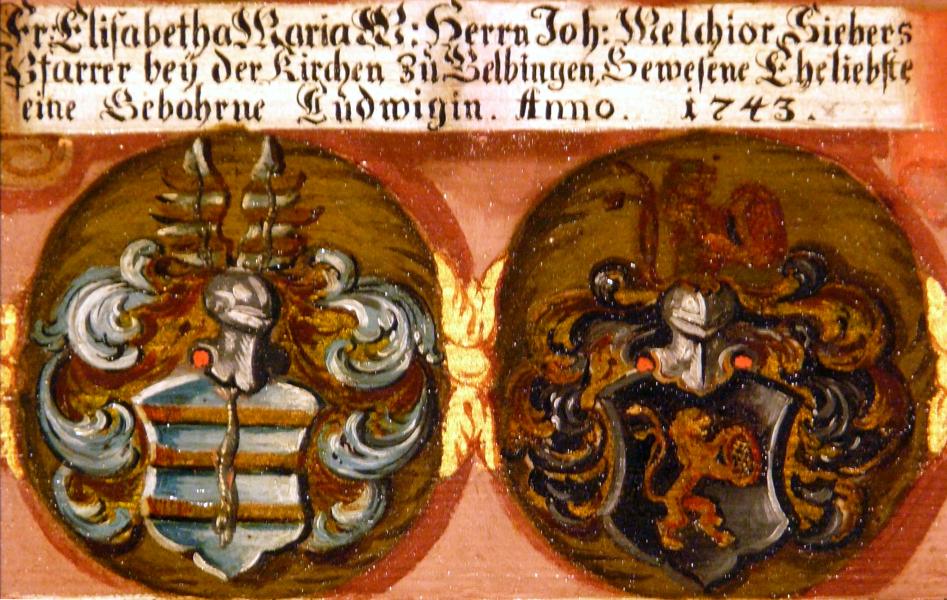 Fr: Elisabetha Maria W: Herrn Joh: Melchior Siebers
Pfarrer beÿ der Kirchen zu Belbingen, Gewesene Eheliebste
eine Gebohrne Ludwigin. Anno. 1743.